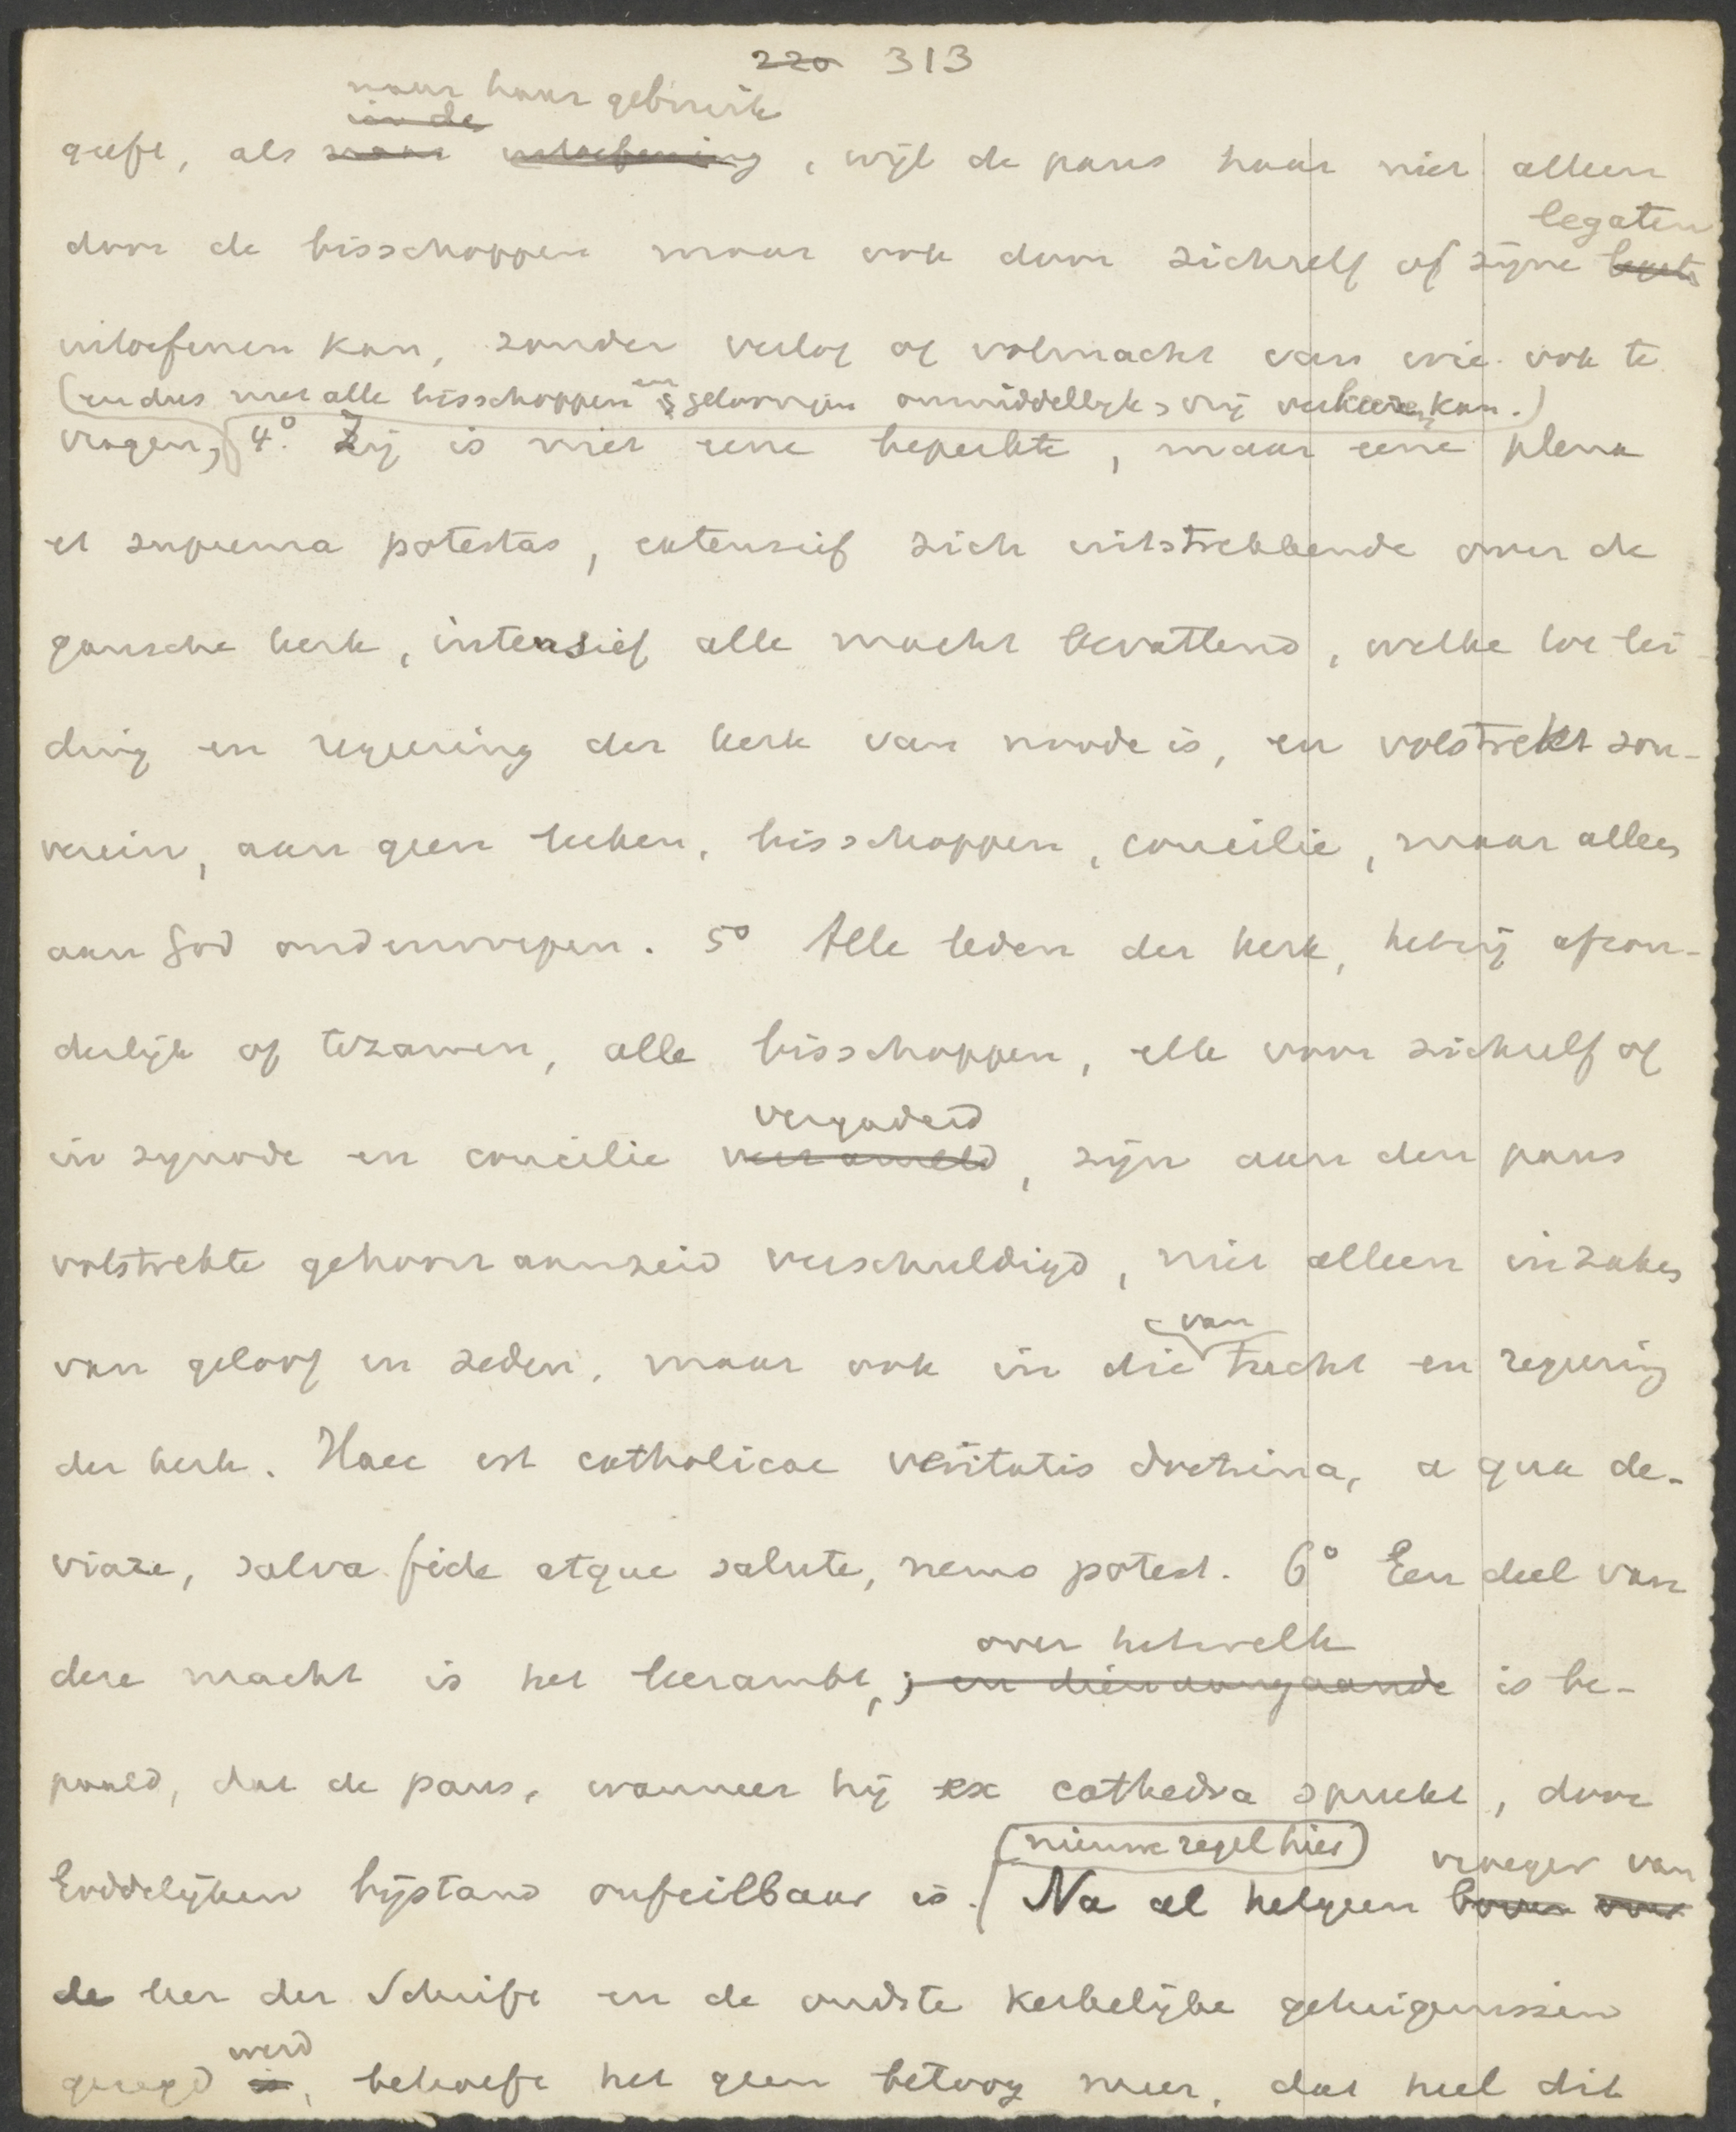 220 313
naar haar gebruik
in de
geeft, als naar uitoefening, wijl de paus haar niet alleen
legaten
door de bisschoppen maar ook door zichzelf of zijne legate
uitoefenen kan, zonder verlof of volmacht van wie ook te
(en dus met alle bisschoppen en geloovigen onmiddellijk, vrij verkeeren kan.)
vragen; 4° Zij is niet eene beperkte, maar eene plena
et suprema potestas, extensief zich uitstrekkende over de
gansche kerk, intensief alle macht bevattend, welke tot lei-
ding en regeering der kerk van noode is, en volstrekt sou-
verein, aan geen leeken, bisschoppen, concilie, maar alleen
aan God onderworpen. 5° Alle leden der kerk, hetzij afzon-
derlijk of tezamen, alle bisschoppen, elk voor zichzelf of
vergaderd
in synode en concilie verzameld, zijn aan den paus
volstrekte gehoorzaamheid verschuldigd, niet alleen in zaken
van
van geloof en zeden, maar ook in die tucht en regeering
der kerk. Haec est catholicae veritatis doctrina, a qua de-
viare, salva fide atque salute, nemo potest. 6° Een deel van
over hetwelk
deze macht is het leerambt, ; en dien aangaande is be-
paald, dat de paus, wanneer hij ex cathedra spreekt, door
(nieuwe regel hier) vroeger van
Goddelijken bijstand onfeilbaar is. Na al hetgeen boven over
de leer der Schrift en de oudste kerkelijke getuigenissen
werd
gezegd is, behoeft het geen betoog meer, dat heel dit